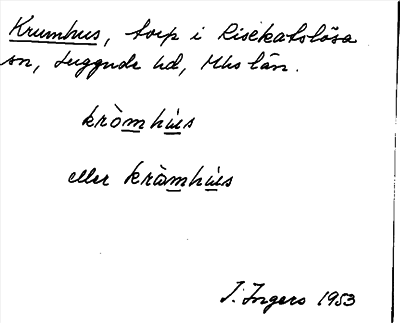 Krumhus, torp i Risekatslösa
sn, Luggude hd, Mhs län.
kròm̲hu̲s
eller kràm̲hu̲s
I. Ingers 1953